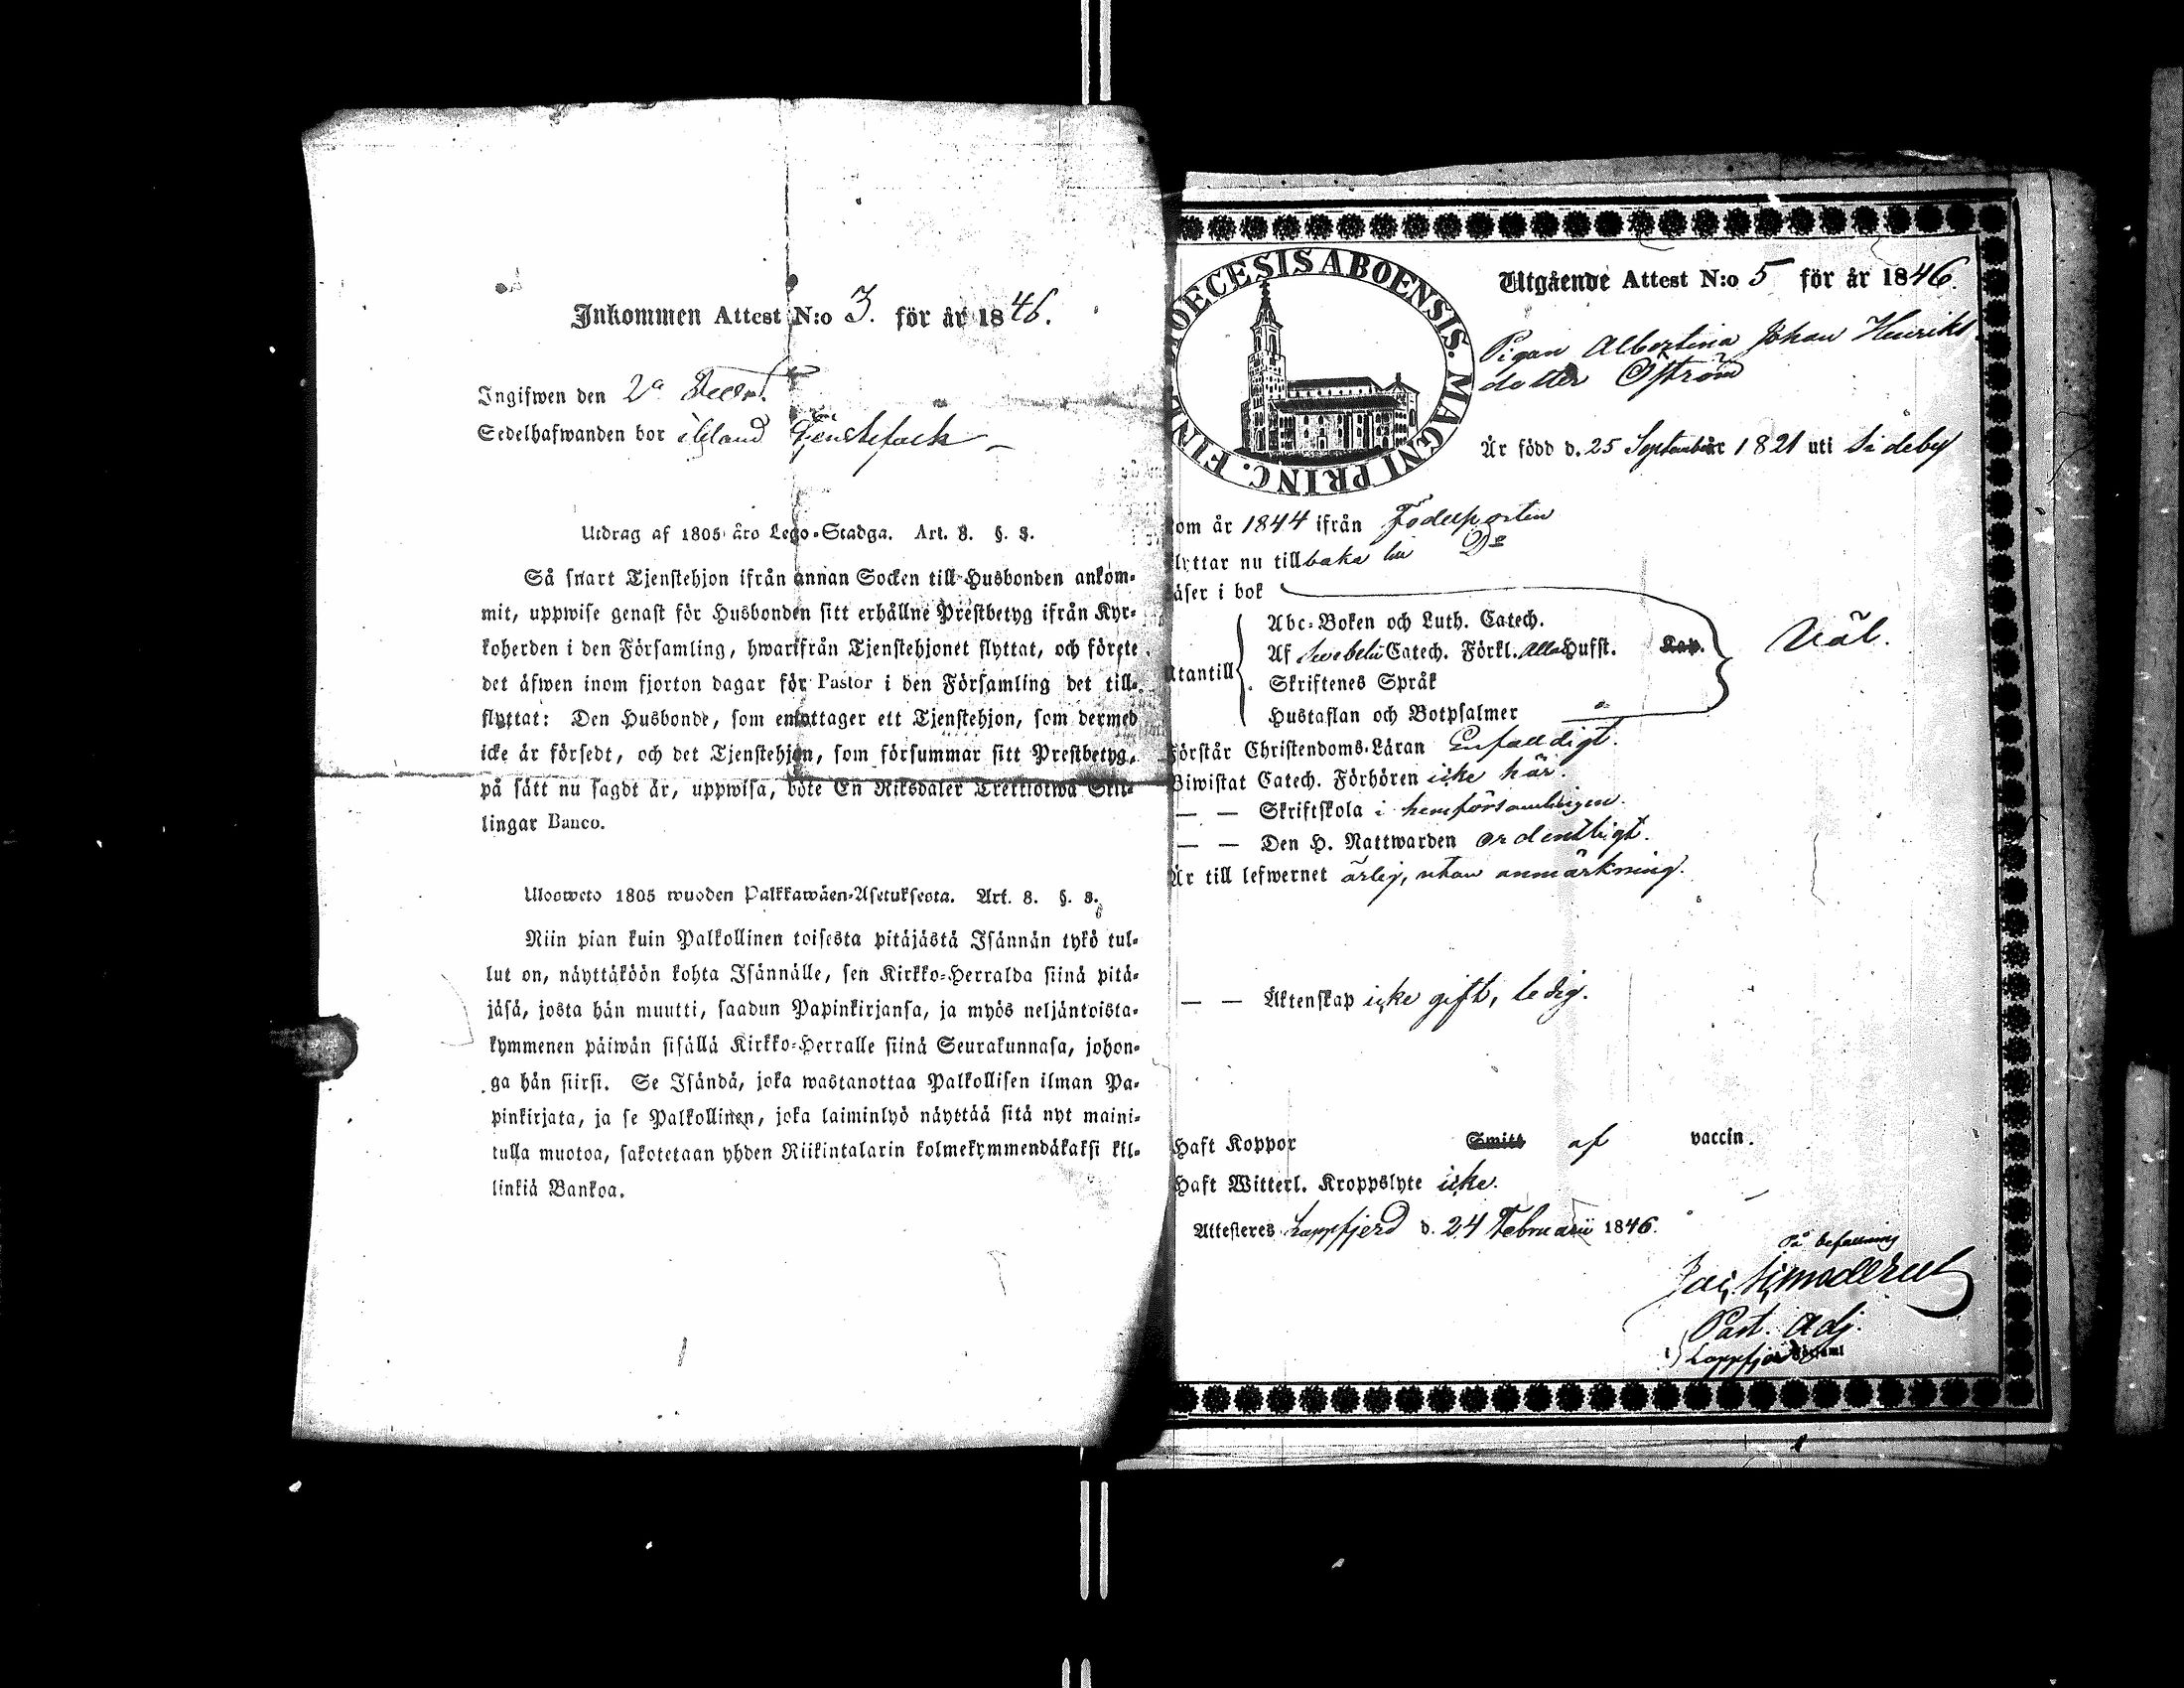 Inkommen Attest N:o 3. för år 1846.
Ingifwen den 2a
Sedelhafwanden bor ibland
Utdrag af 1805 års Lego-Stadga. Art. 8. §. 8.
Så snart Tjenstehjon ifrån annan Socken till Husbonden ankom-
mit, uppwise genast för Husbonden sitt erhållne Prestbetyg ifrån Kyr-
koherden i den Församling, hwarifrån Tjenstehjonet flyttat, och förete
det äfwen inom fjorton dagar för Pastor i den Församling det till-
flyttat: Den Husbonde, som emottager ett Tjenstehjon, som dermed
icke är försedt, och det Tjenstehjon, som försummar sitt Prestbetyg,
på sätt nu sagdt är, uppwisa, böte En Riksdaler Trettiotwå Skil-
lingar Banco.
Ulosweto 1805 wuoden Palkkawäen-Asetuksesta. Art. 8. §. 8.
Niin pian kuin Palkollinen toisesta pitäjästä Isännän tykö tul-
lut on, näyttäköön kohta Isännälle, sen Kirkko-Herralda siinä pitä-
jäsä, josta hän muutti, saadun Papinkirjansa, ja myös neljäntoista-
kymmenen päiwän sisällä Kirkko-Herralle siinä Seurakunnasa, johon-
ga hän siirsi. Se Isändä, joka wastanottaa Palkollisen ilman Pa-
pinkirjata, ja se Palkollinen, joka laiminlyö näyttää sitä nyt maini-
tulla muotoa, sakotetaan yhden Riikintalarin kolmekymmendäkaksi kil-
linkiä Bankoa.
DIOECESIS ABOENSIS. MAGNI PRINC. FINL.
Utgående Attest N:o 5 för år 1846.
Pigan Albertina Johan Henriks
dotter Öström
Är född d. 25 September 1821 uti Sideby
om år 1844 ifrån Födelseorten
lyttar nu tillbaka till Do
äser i bok
Utantill
Abc-Boken och Luth. Catech.
Af Swebelii Catech. Förkl. Alla Hufst. Kap.
Skriftenes Språk
Hustaflan och Botpsalmer
Väl.
Förstår Christendoms-Läran Enfaldigt.
Biwistat Catech. Förhören icke här.
— — Skriftskola i hemförsamlingen.
— — Den H. Nattwarden ordentligt.
Är till lefwernet ärlig, utan anmärkning.
— — Äktenskap icke gift, ledig.
Haft Koppor Smitt af vaccin.
Haft Witterl. Kroppslyte icke.
Attesteres Lappfjerd d. 24 Februarii 1846.
På befallning
Past. Adj.
i Lappfjerd Församl